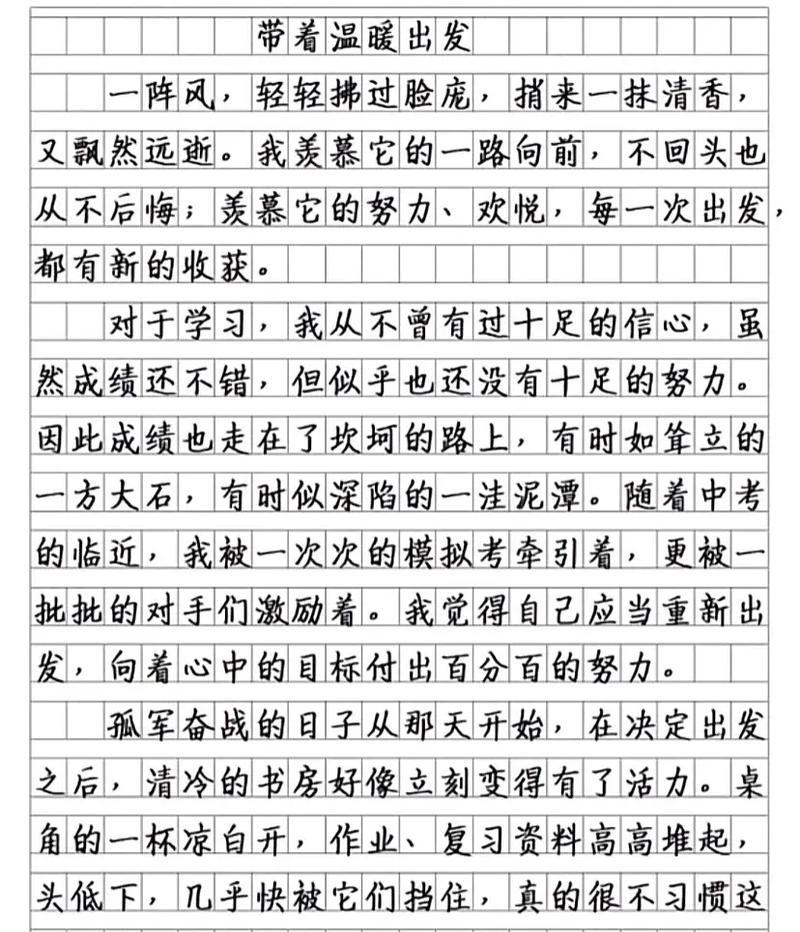 带着温暖出发
一阵风，轻轻拂过脸庞，捎来一抹清香，
又飘然远逝。我羡慕它的一路向前，不回头也
从不后悔；羡慕它的努力、欢悦，每一次出发，
都有新的收获。
对于学习，我从不曾有过十足的信心，虽
然成绩还不错，但似乎也还没有十足的努力。
因此成绩也走在了坎坷的路上，有时如耸立的
一方大石，有时似深陷的一洼泥潭。随着中考
的临近，我被一次次的模拟考牵引着，更被一
批批的对手们激励着。我觉得自己应当重新出
发，向着心中的目标付出百分百的努力。
孤军奋战的日子从那天开始，在决定出发
之后，清冷的书房好像立刻变得有了活力。桌
角的一杯凉白开，作业、复习资料高高堆起，
头低下，几乎快被它们挡住，真的很不习惯这